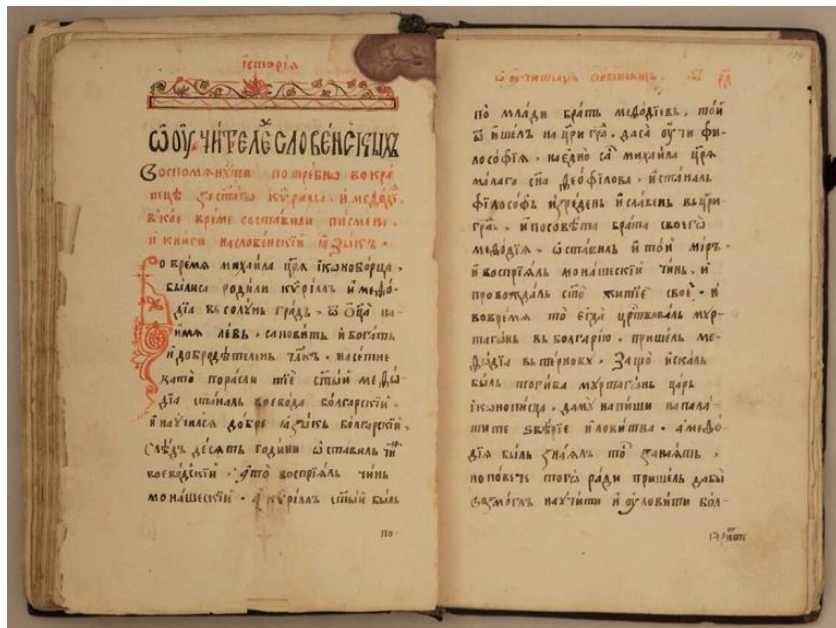 їсторїа
Ѡ ОУЧИТЕЛЕ СЛОВЕНСКЫХЪ
Воспомянути потребно вокра
тцѣ за стаго кѷрїлла, и меѳодїа
в кое време составили писмена,
и книги на словенскїй ꙗзыкъ.
о время михаила цр҃я їконоборца,
былиса родили кѷрїллъ и меѳо-
дїа въ солунь градъ, ѿ оц҃а на
имя левъ, сановитъ и богатъ
и добродѣтеленъ такъ, насетне
като порасли тїе ст҃ый меѳо
дїа сталъ воевода болгарскїй,
и научился добре ꙗзыкъ болгарскїй,
слѣдъ десять години ѡставилъ чинъ
воеводскїй, что воспрїялъ чинъ
монашескїй. А кѷрїллъ ст҃ый былъ
по
ѡ учителехъ словенскихъ.
по млади братъ меѳодїевъ, той
ѿишелъ на цариград, да са оучи фи-
лософїя, наедно са михаила цр҃я
малаго сн҃а ѳеофїлова, и сталъ
фїлософъ изреденъ и славенъ въ цри-
град, и посовѣта брата своегѡ
меѳодїа, ѡставилъ и той мїръ,
и воспрїялъ монашескїй чинъ, и
провождалъ ст҃о житїе свое, и
вовремя то егда цр҃твовалъ мур-
тагонъ въ болгарїю, пришелъ ме-
ѳодїа въ терновъ, защо искалъ
былъ тогива муртагонъ царь
їконописца, да му напиши на пала-
тите ѕвѣрїе и ловитва, а меѳо-
дїя былъ знаялъ той занаятъ,
но повече тогѡ ради пришелъ дабы
возмоглъ научити и оуловити бол-